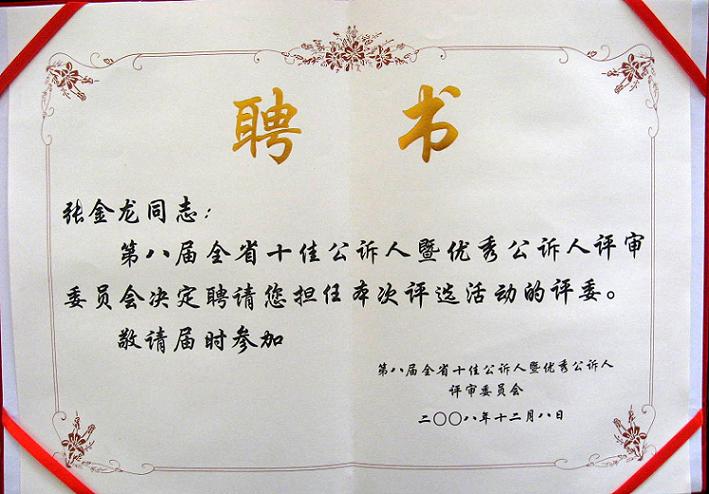 聘书
张金龙同志：
第八届全省十佳公诉人暨优秀公诉人评审
委员会决定聘请您担任本次评选活动的评委。
敬请届时参加
第八届全省十佳公诉人暨优秀公诉人
评审委员会
二〇〇八年十二月八日